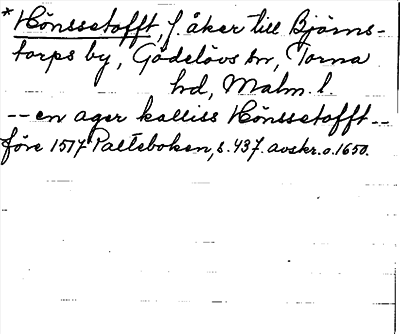 * Hönssetofft, f. åker till Björns-
torps by, Gödelövs sn, Torna
hd, Malm. l.
-- en ager kalliss Hönssetofft --
före 1517 Palteboken, s. 437. avskr. o. 1650.